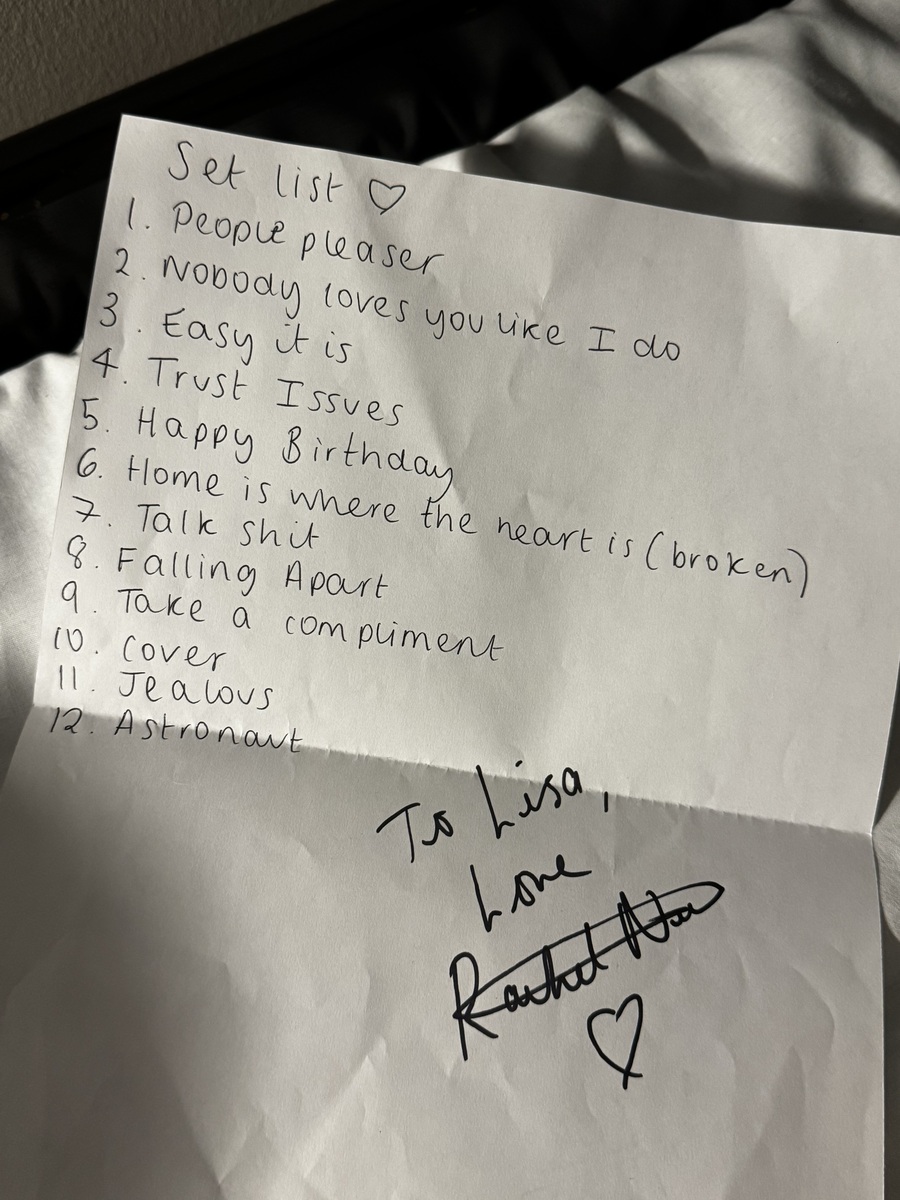 Set list ♡
1. People pleaser
2. Nobody loves you like I do
3. Easy it is
4. Trust Issues
5. Happy Birthday
6. Home is where the heart is (broken)
7. Talk shit
8. Falling Apart
9. Take a compliment
10. Cover
11. Jealous
12. Astronaut
To Lisa,
Love
Rachel
♡